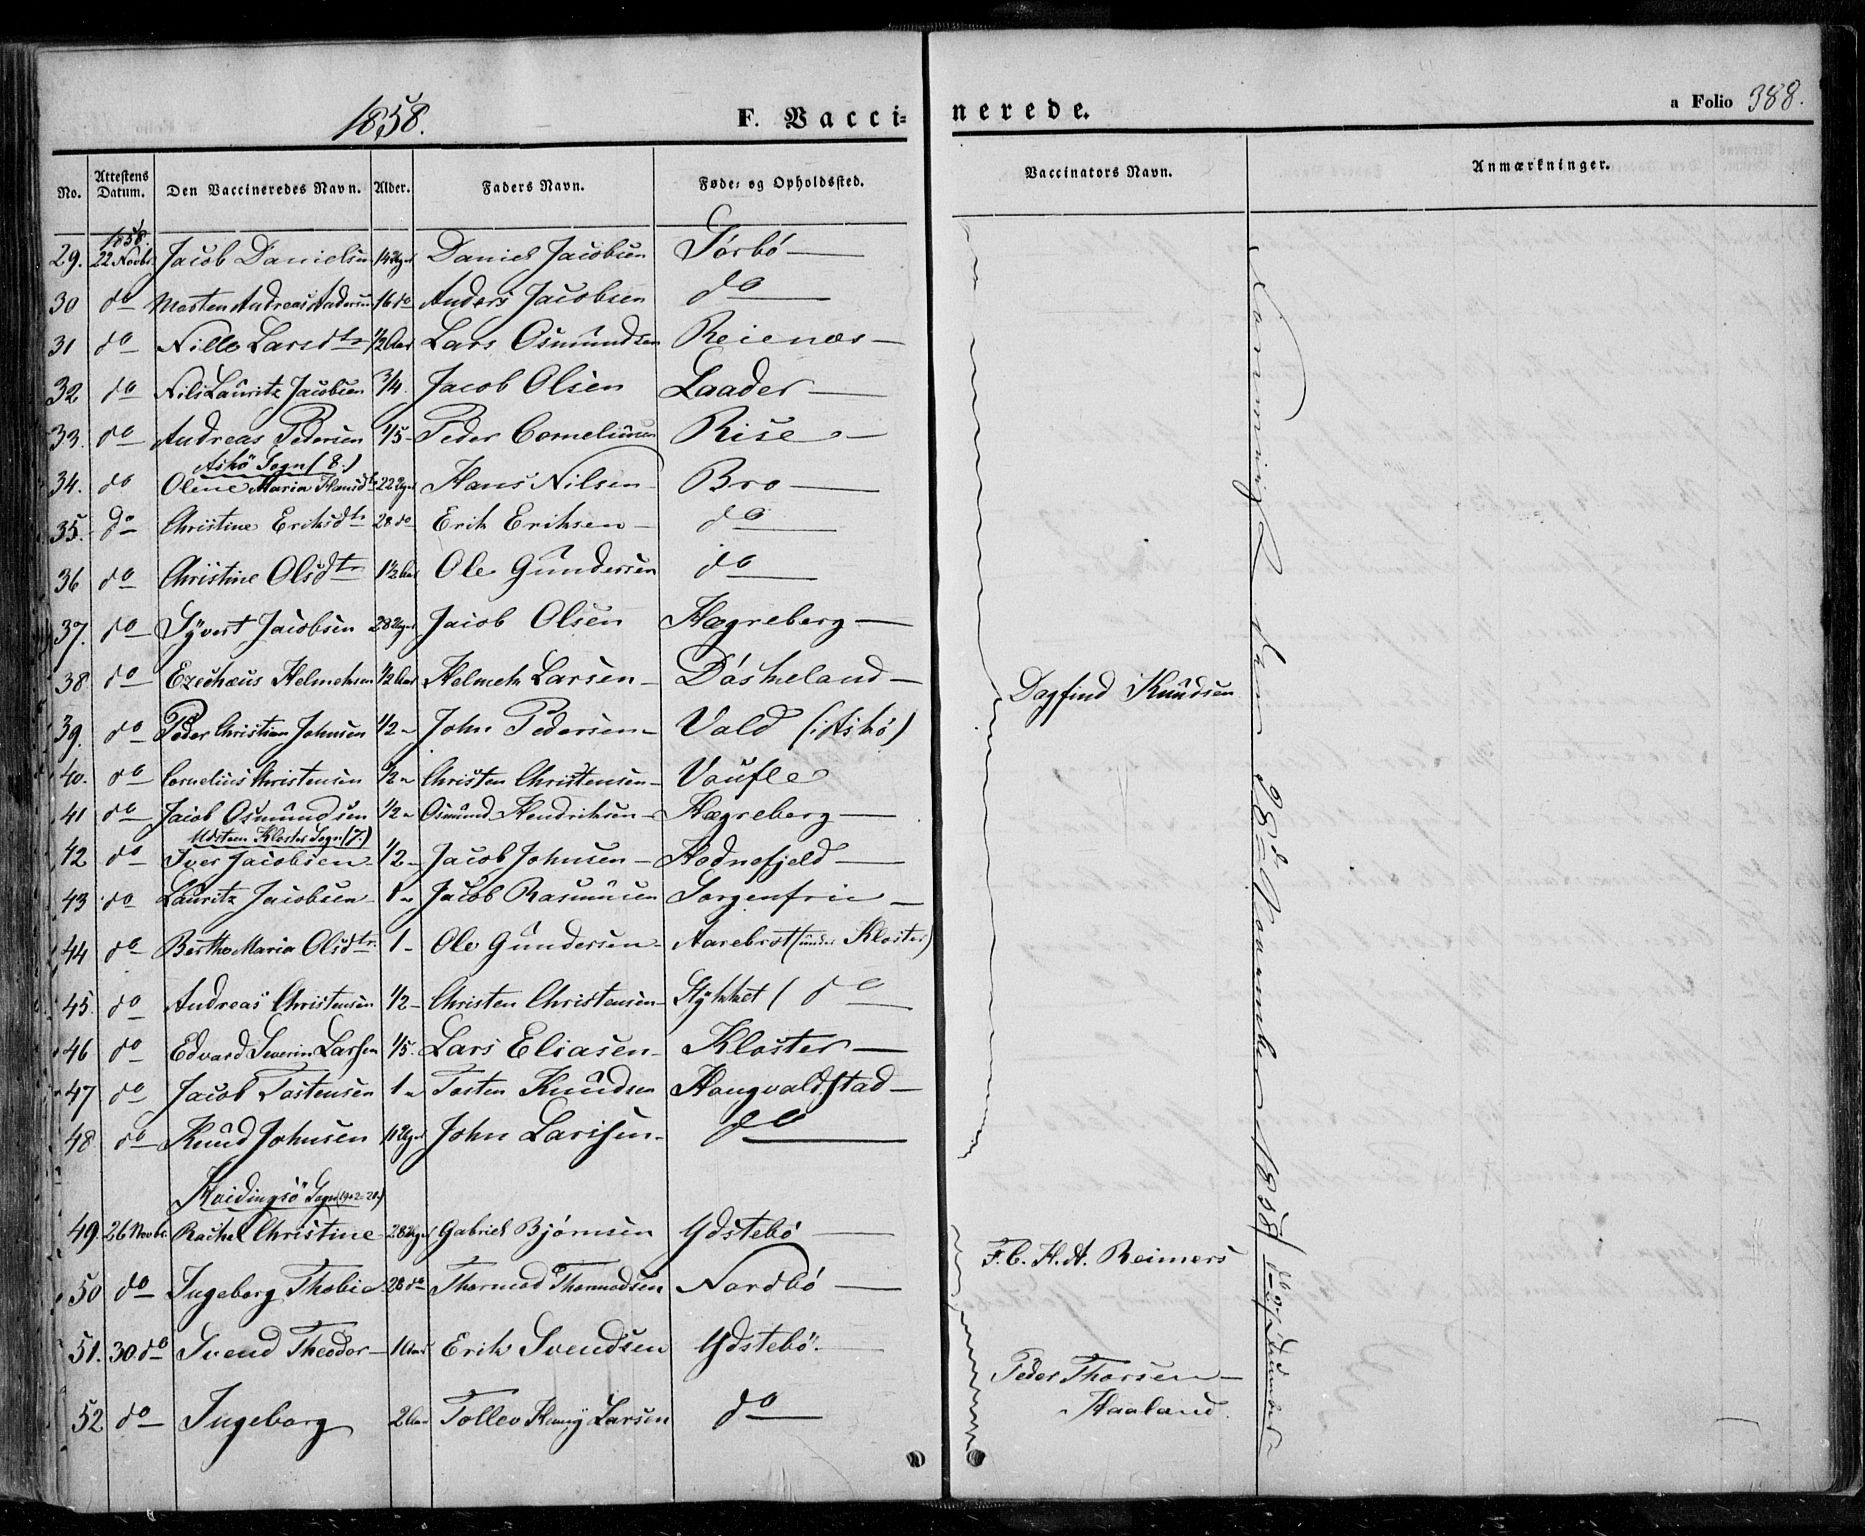 1858.
F. Vacci=
nerede.
a Folio 388.
No. Attestens Datum. Den Vaccineredes Navn. Alder. Faders Navn. Føde= og Opholdssted. Vaccinators Navn. Anmærkninger.
1858.
29. 22 Novbr Jacob Danielsen 14 Uger Daniel Jacobsen Sørbö
30 do Morten Andreas Andersen 16 do Anders Jacobsen do
31 do Nille Larsdtr 1/2 Aar Lars Osmundsen Reienæs
32 do Nils Lauritz Jacobsen 3/4. Jacob Olsen Laader
33. do Andreas Pedersen 1/5 Peder Corneliusen Rise
Askö Sogn (8.)
34. do Olene Maria Hansdtr 22 Uger Hans Nilsen Bro
35. do Christine Eriksdtr 28 do Erik Eriksen do
36 do Christine Olsdtr 1 1/2 Aar Ole Gundersen do
37. do Syvert Jacobsen 28 Uger Jacob Olsen Hægreberg
38. do Ezechæus Helmeksen 1/2 Aar Helmeth Larsen Döskeland
39. do Peder Christian Johnsen 1/2 John Pedersen Vald (i Askö)
40. do Cornelius Christensen 1/2 Christen Christensen Voufle
41 do Jacob Osmundsen 1/2 Osmund Hendriksen Hægreberg
Utstein Kloster Sogn (7.)
42 do Iver Jacobsen 1/2 Jacob Johnsen Hodnefjeld
43 do Lauritz Jacobsen 1 Jacob Rasmusen Sorgenfrie
44 do Berthe Maria Olsdtr. 1 Ole Gundersen Aarebrot (under Kloster)
45. do Andreas Christensen 1/2 Christen Christensen Stykket ( do
46 do Edvard Severin Larsen 1/5. Lars Eliasen Kloster
47 do Jacob Tostensen 1 Tosten Knudsen Hougvaldstad
48 do Knud Johnsen Uger John Larssen do
Dagfind Knudsen
Kvidingsö Sogn
49. 26 Novbr. Rachel Christine 28 Uger Gabriel Bjørnsen Ydstebö
50 do Ingeborg Thobie 28 do Thormod Thormodsen Nordbö
F. C. H. A. Reimers
51. 30. do Svend Theodor 1 Aar Erik Svendsen Ydstebö.
52 do Ingeborg 2 Aar Tollev Henry Larsen do
Peder Thorsen
Haaland.
den 28d November 1858